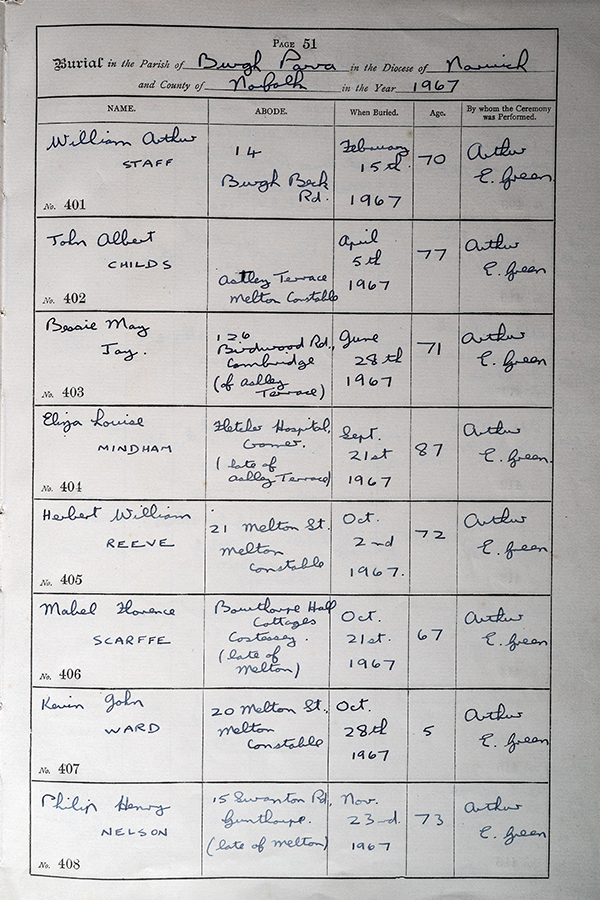 PAGE 51
Burial in the Parish of Burgh Parva in the Diocese of Norwich
and County of Norfolk in the Year 1967
NAME. ABODE. When Buried. Age. By whom the Ceremony was Performed.
William Arthur
STAFF
No. 401
14
Burgh Beck
Rd.
February
15th
1967
70
Arthur
E. Green
John Albert
CHILDS
No. 402
Astley Terrace
Melton Constable
April
5th
1967
77
Arthur
E. Green
Bessie May
Jay.
No. 403
126
Birdwood Rd.,
Cambridge
(of Astley
Terrace)
June
28th
1967
71
Arthur
E. Green
Eliza Louise
MINDHAM
No. 404
Fletcher Hospital,
Cromer.
(late of
Astley Terrace)
Sept.
21st
1967
87
Arthur
E. Green.
Herbert William
REEVE
No. 405
21 Melton St.
Melton
Constable
Oct.
2nd
1967.
72
Arthur
E. Green
Mabel Florence
SCARFFE
No. 406
Bowthorpe Hall
Cottages
Costessey.
(late of
Melton)
Oct.
21st.
1967
67
Arthur
E. Green
Kevin John
WARD
No. 407
20 Melton St.,
Melton
Constable
Oct.
28th
1967
5
Arthur
E. Green
Philip Henry
NELSON
No. 408
15 Swanton Rd,
Gunthorpe.
(late of Melton)
Nov.
23rd.
1967
73
Arthur
E. Green